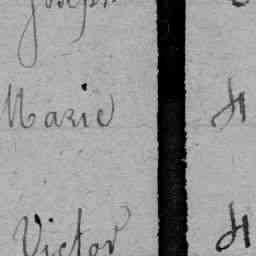 Joseph
Marie H
Victor H